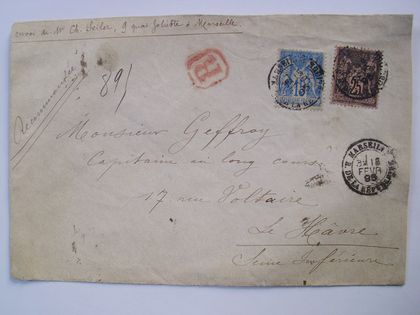 envoi de Mr Ch. Seilor, 9 quai Joliette à Marseille
Recommandée
R
891
15
25
Monsieur Geffroy
Capitaine au long cours
17 rue Voltaire
Le Havre
Seine Inférieure
MARSEILLE
18
FEVR
95